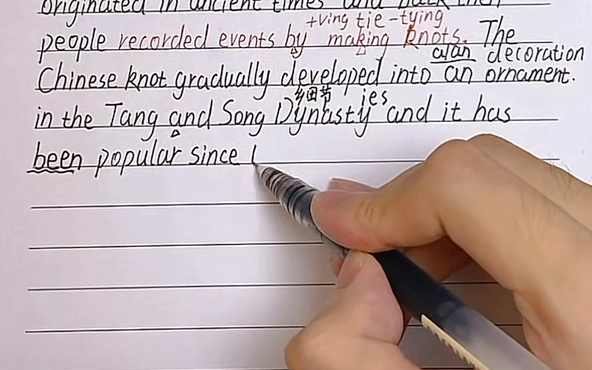 originated in ancient times and back then
+ving tie-tying
people recorded events by making knots. The
a/an decoration
Chinese knot gradually developed into an ornament.
细节 ies
in the Tang and Song Dynasty and it has
been popular since